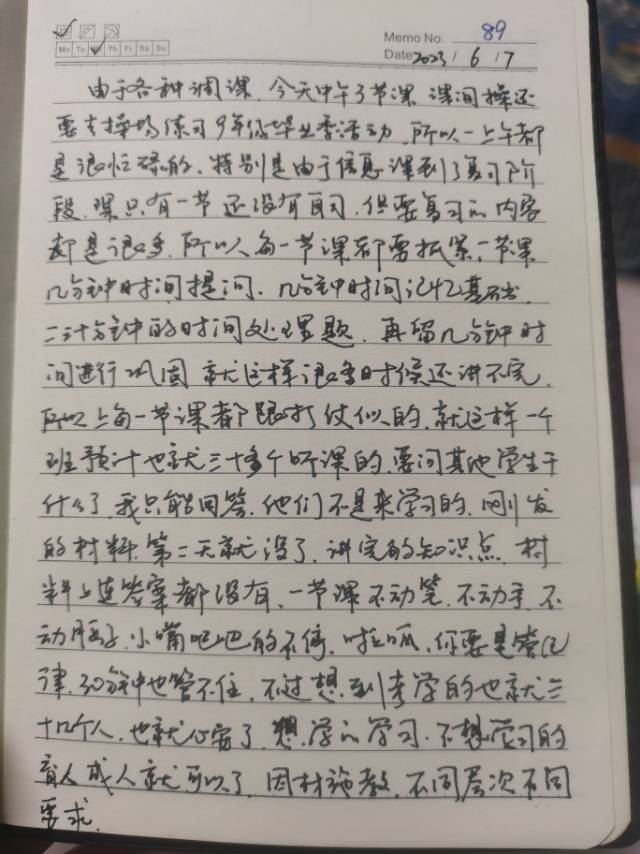 Memo No. 89
Mo Tu We Th Fr Sa Su
Date 2023 / 6 / 7
由于各种调课,今天中午3节课,课间操还
要去操场练习9年级毕业季活动,所以一上午都
是很忙碌的,特别是由于信息课到了复习阶
段,课只有一节还没有自习,但要复习的内容
都是很多,所以每一节课都要抓紧,一节课
几分钟时间提问、几分钟时间记忆基础,
二三十分钟的时间处理题,再留几分钟时
间进行巩固,就这样很多时候还讲不完,
所以上每一节课都跟打仗似的,就这样一个
班预计也就三十多个听课的,要问其他学生干
什么了,我只能回答,他们不是来学习的,刚发
的材料第二天就没了,讲完的知识点,材
料上连答案都没有,一节课不动笔,不动手,不
动脑子,小嘴吧吧的不停,啦呱,你要是管纪
律,30分钟也管不住,不过想到考学的也就三
十几个人,也就心安了,想学的学习,不想学习的
育人成人就可以了,因材施教,不同层次不同
要求.